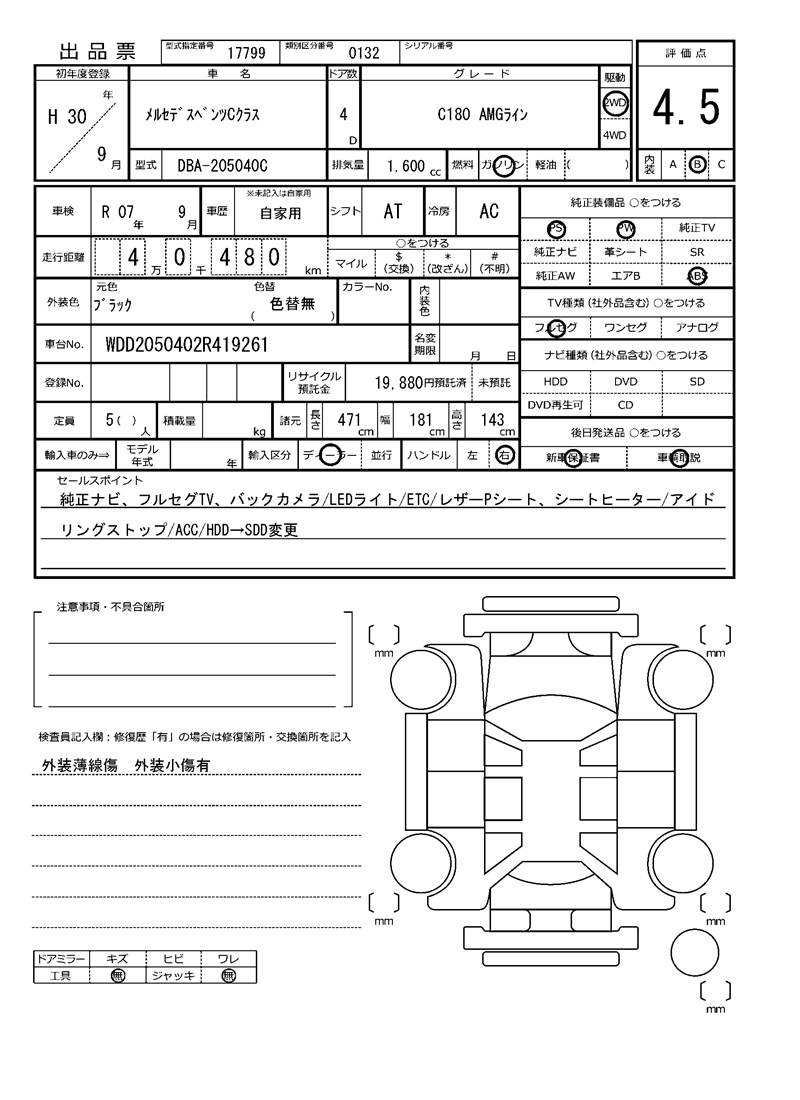 出品票 型式指定番号 17799 類別区分番号 0132 シリアル番号
初年度登録 車名 ドア数 グレード 駆動 評価点
H 30 年 9 月 メルセデスベンツCクラス 4 D C180 AMGライン 2WD 4WD 4.5
型式 DBA-205040C 排気量 1,600 cc 燃料 ガソリン 軽油 ( ) 内装 A B C
車検 R 07 年 9 月 車歴 ※未記入は自家用 自家用 シフト AT 冷房 AC
純正装備品 ○をつける
PS PW 純正TV
走行距離 4 万 0 千 4 8 0 km ○をつける マイル $ (交換) * (改ざん) # (不明)
純正ナビ 革シート SR
純正AW エアB ABS
外装色 元色 ブラック 色替 色替無 ( ) カラーNo. 内装色
TV種類(社外品含む)○をつける
フルセグ ワンセグ アナログ
車台No. WDD2050402R419261 名変期限 月 日
ナビ種類(社外品含む)○をつける
登録No. リサイクル預託金 19,880円預託済 未預託
HDD DVD SD
DVD再生可 CD
定員 5( ) 人 積載量 kg 諸元 長さ 471 cm 幅 181 cm 高さ 143 cm
後日発送品 ○をつける
輸入車のみ⇒ モデル年式 年 輸入区分 ディーラー 並行 ハンドル 左 右
新車保証書 車輌取説
セールスポイント
純正ナビ、フルセグTV、バックカメラ/LEDライト/ETC/レザーPシート、シートヒーター/アイド
リングストップ/ACC/HDD→SDD変更
注意事項・不具合箇所
mm mm
検査員記入欄：修復歴「有」の場合は修復箇所・交換箇所を記入
外装薄線傷 外装小傷有
mm mm
ドアミラー キズ ヒビ ワレ
工具 無 ジャッキ 無
mm